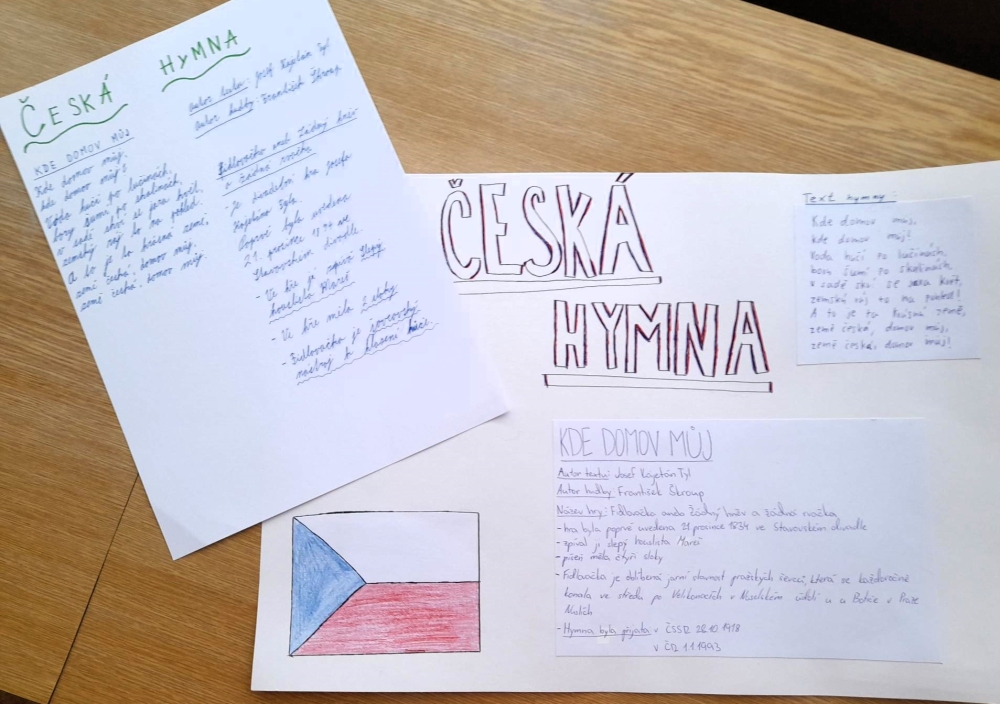 ČESKÁ HYMNA
KDE DOMOV MŮJ
Kde domov můj,
kde domov můj?
Voda hučí po lučinách,
bory šumí po skalinách,
v sadě skví se jara květ,
zemský ráj to na pohled.
A to je ta krásná země,
země česká, domov můj,
země česká, domov můj.
Autor textu: Josef Kajetán Tyl
Autor hudby: František Škroup
Fidlovačka aneb žádný hněv
a žádná rvačka
- je divadelní hra Josefa
Kajetána Tyla.
Poprvé byla uvedena
21. prosince 1834 ve
Stavovském divadle.
- Ve hře jí zpívá slepý
houslista Mareš
- Ve hře měla 2 sloky
- Fidlovačka je ševcovský
nástroj k hlazení kůže.
ČESKÁ
HYMNA
Text hymny:
Kde domov můj,
kde domov můj!
Voda hučí po lučinách,
bory šumí po skalinách,
v sadě skví se jara květ,
zemský ráj to na pohled!
A to je ta krásná země,
země česká, domov můj,
země česká, domov můj!
KDE DOMOV MŮJ
Autor textu: Josef Kajetán Tyl
Autor hudby: František Škroup
Název hry: Fidlovačka anebo žádný hněv a žádná rvačka
- hra byla poprvé uvedena 21 prosince 1834 ve Stavovském divadle
- zpíval ji slepý houslista Mareš
- píseň měla čtyři sloky
- Fidlovačka je oblíbená jarní slavnost pražských ševců, která se každoročně
konala ve středu po Velikonocích v Nuselském údolí u a Botiče v Praze
Nuslích
- Hymna byla přijata v ČSSR 28.10 1918
v ČR 1.1 1993